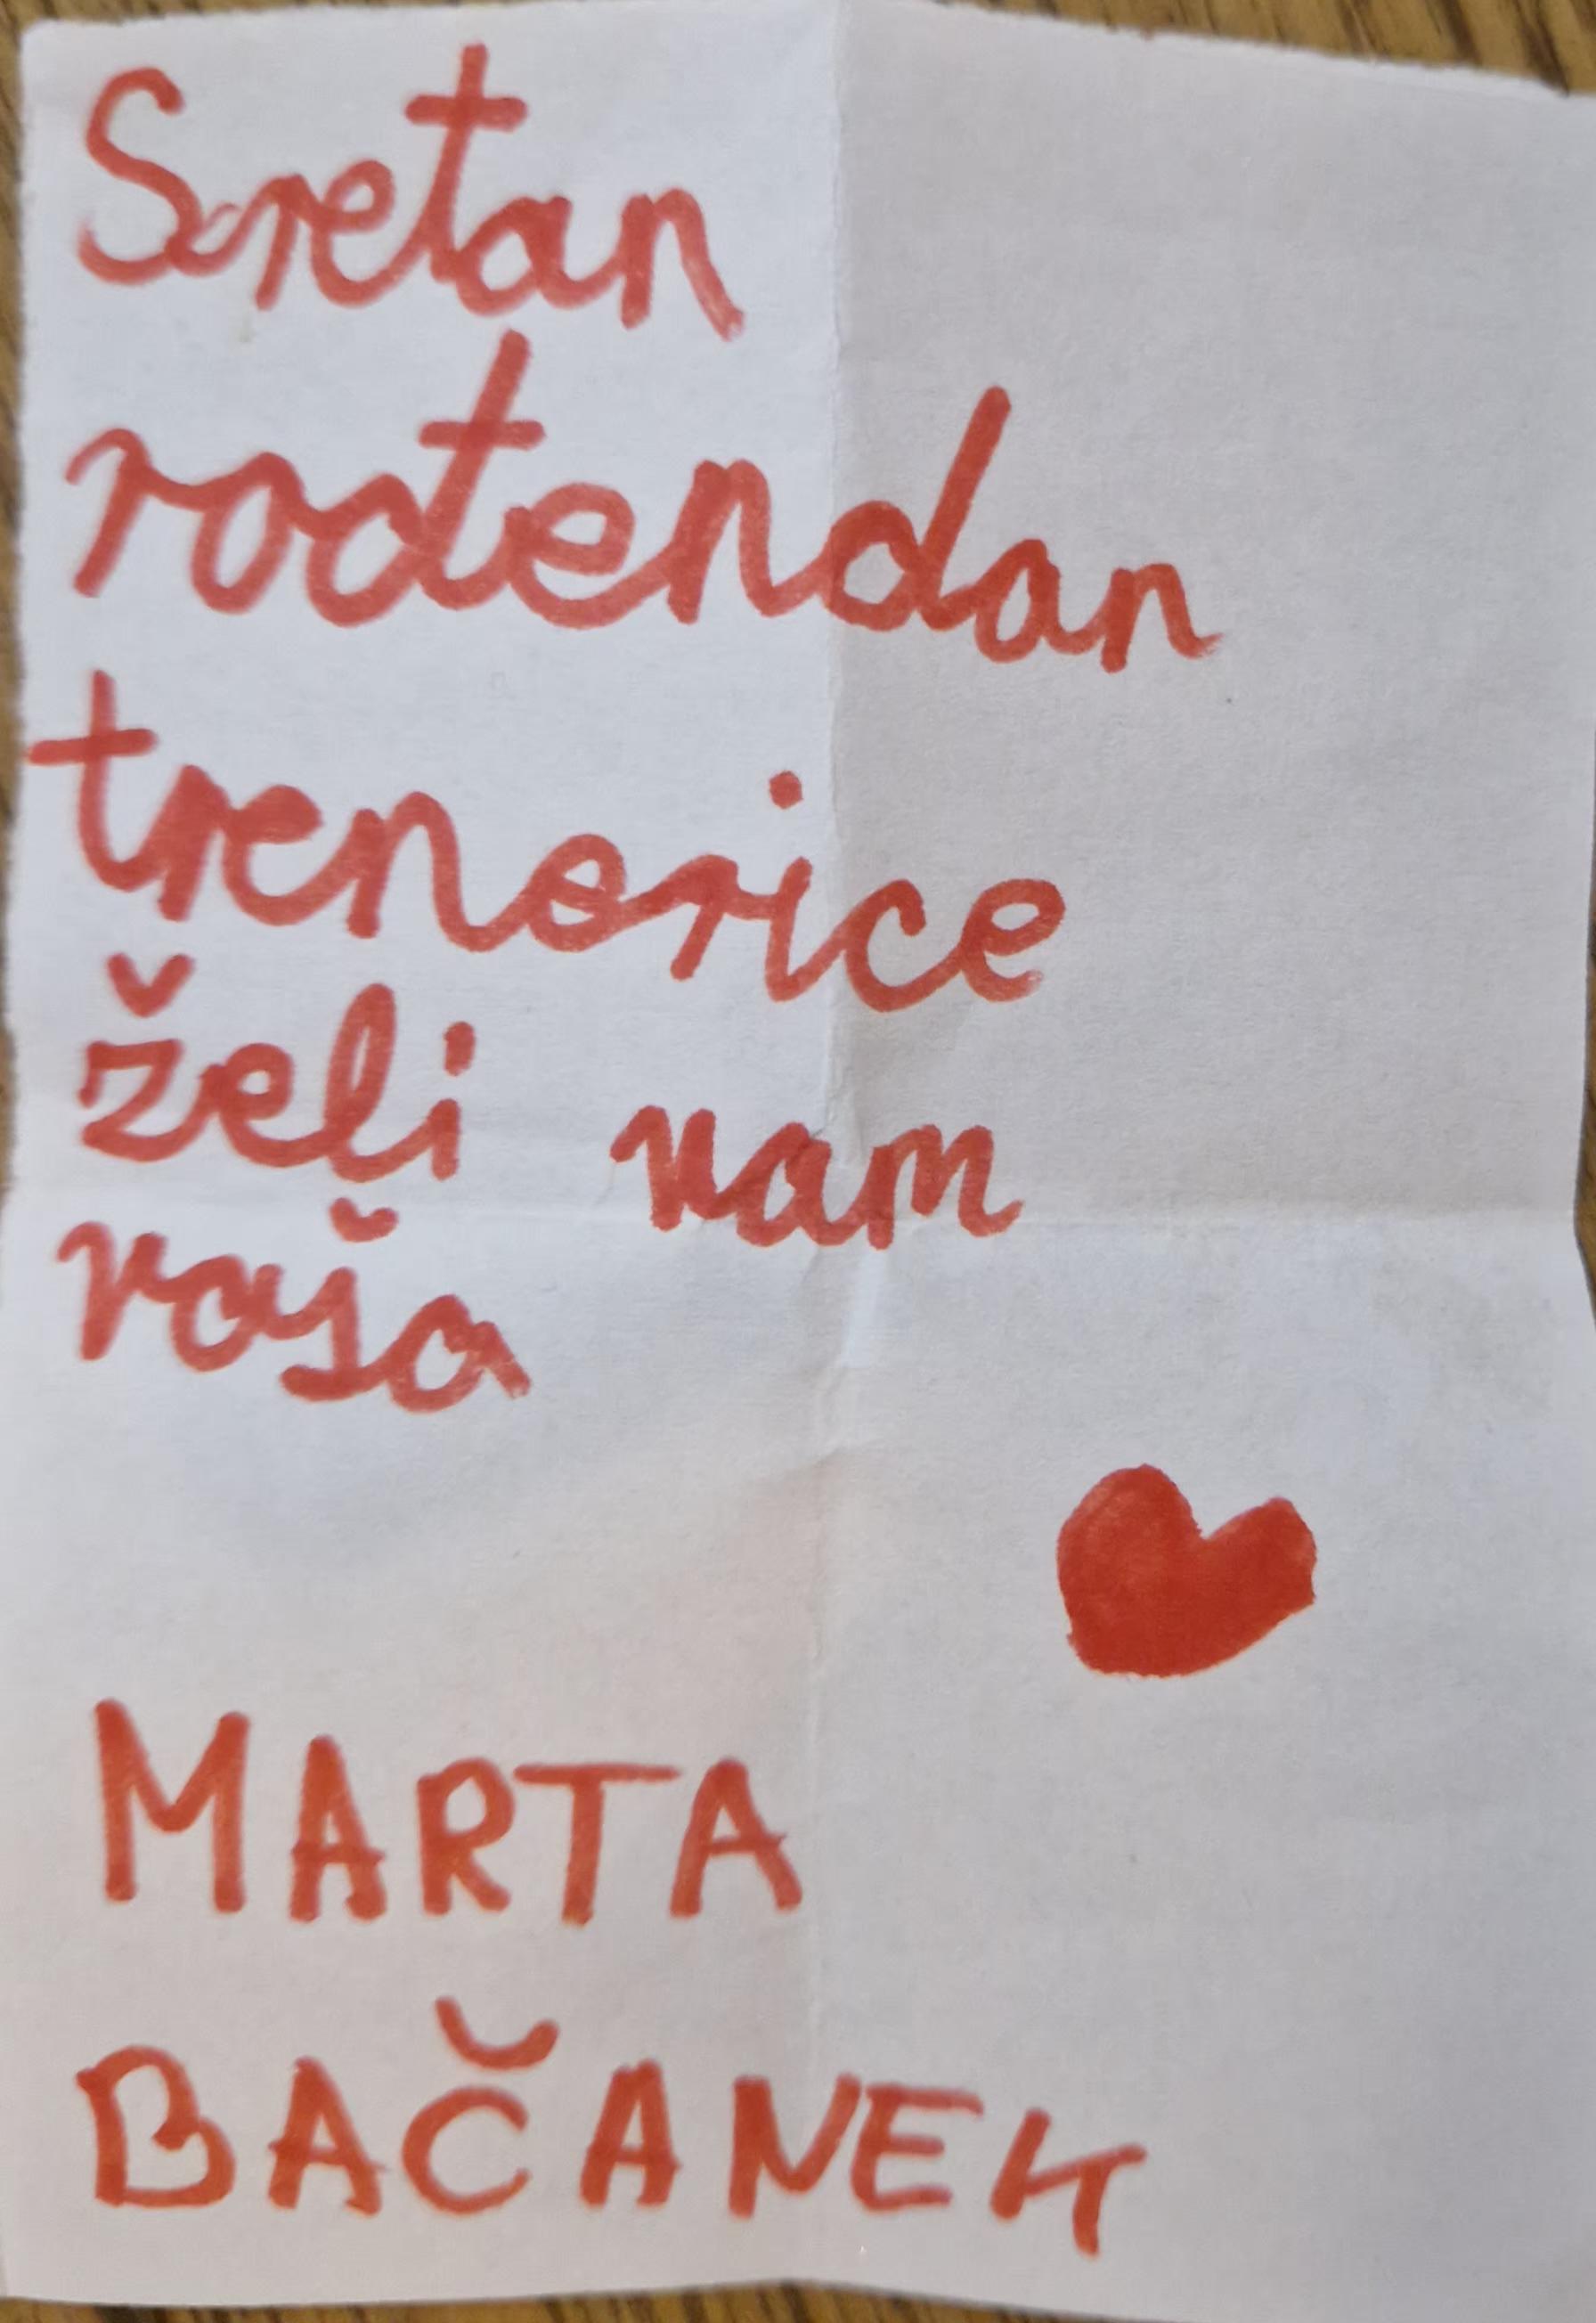 Sretan
rođendan
trenerice
želi vam
vaša
MARTA
BAČANEK